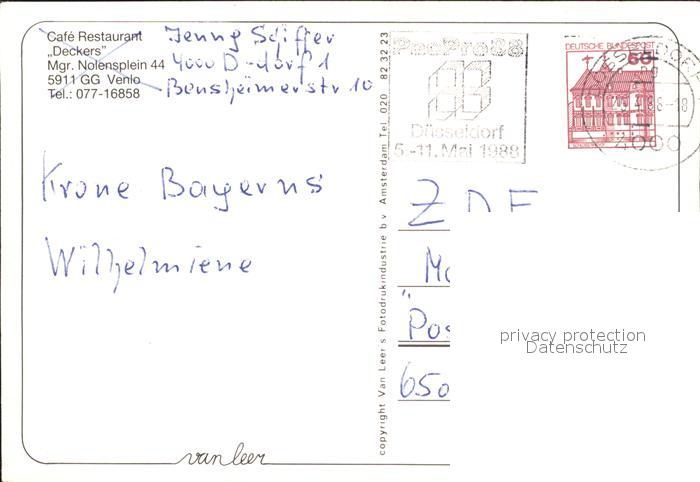 Café Restaurant
„Deckers"
Mgr. Nolensplein 44
5911 GG Venlo
Tel.: 077-16858
Jenny Schiffer
4000 D-dorf 1
Bensheimerstr 10
PecPro88
Düsseldorf
5.-11. Mai 1988
DEUTSCHE BUNDESPOST
60
4000
Krone Bayerns
Wilhelmiene
copyright Van Leer's Fotodrukindustrie b.v. Amsterdam Tel. 020 82.32.23
ZDF
"Pos
650
privacy protection
Datenschutz
van leer